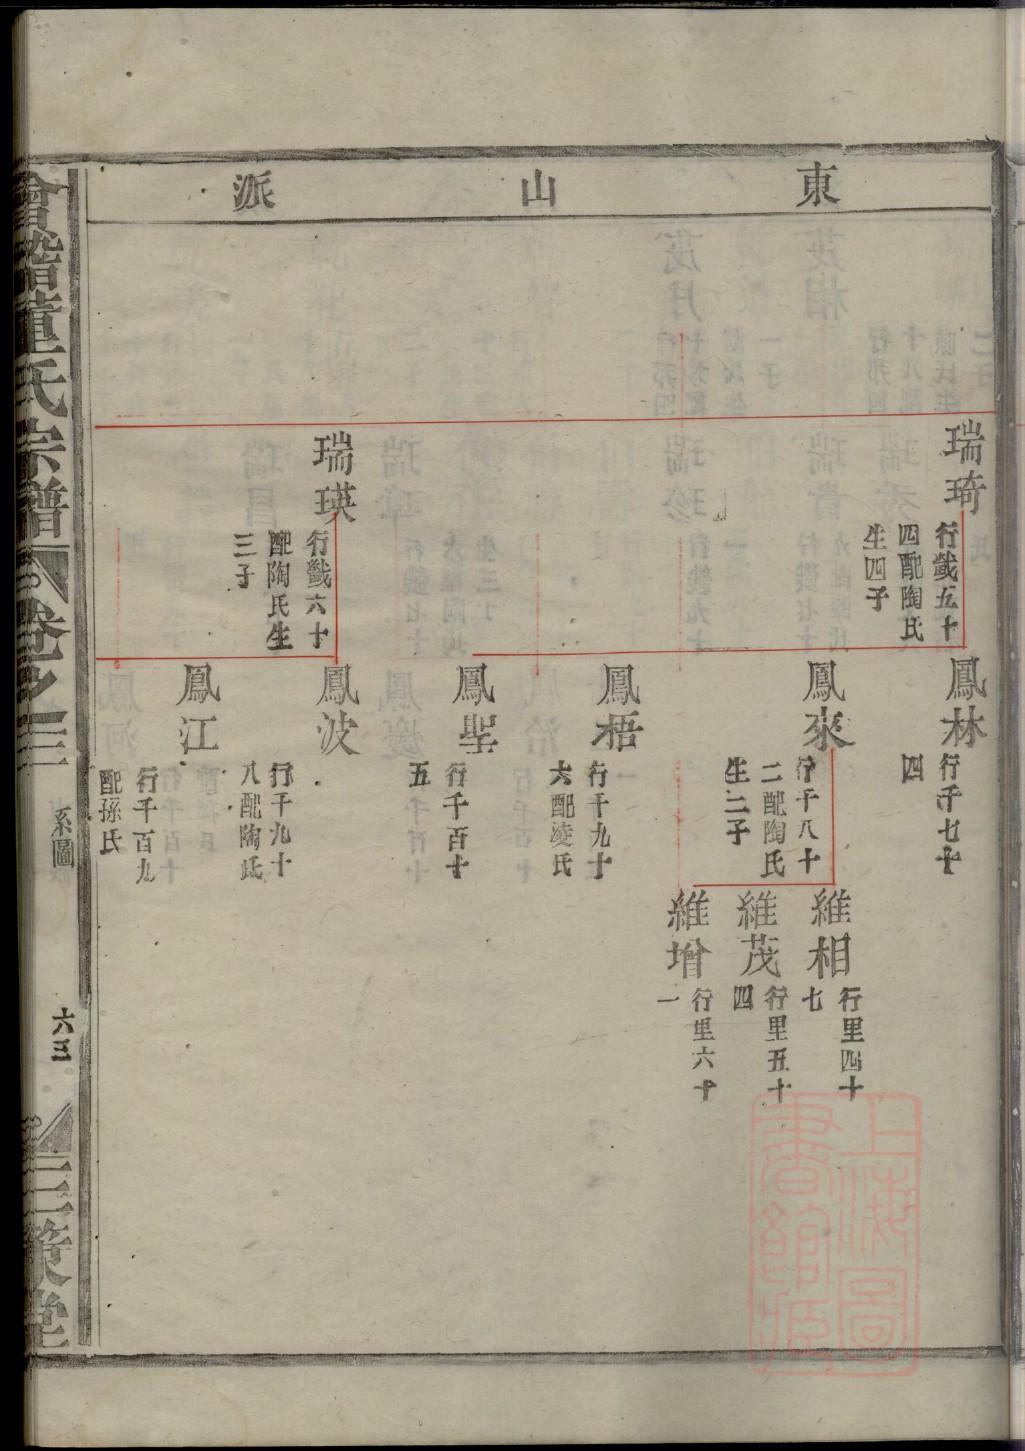 東山派
瑞琦
行韱五十
四配陶氏
生四子
瑞瑛
行韱六十
配陶氏生
三子
鳳林
行千七十
四
鳳來
行千八十
二配陶氏
生三子
鳳梧
行千九十
六配凌氏
鳳聖
行千百十
五
鳳波
行千九十
八配陶氏
鳳江
行千百九
配孫氏
維相
行里四十
七
維茂
行里五十
四
維增
行里六十
一
會稽董氏宗譜
卷之三
系圖
六三
三策堂
上海圖
書館藏